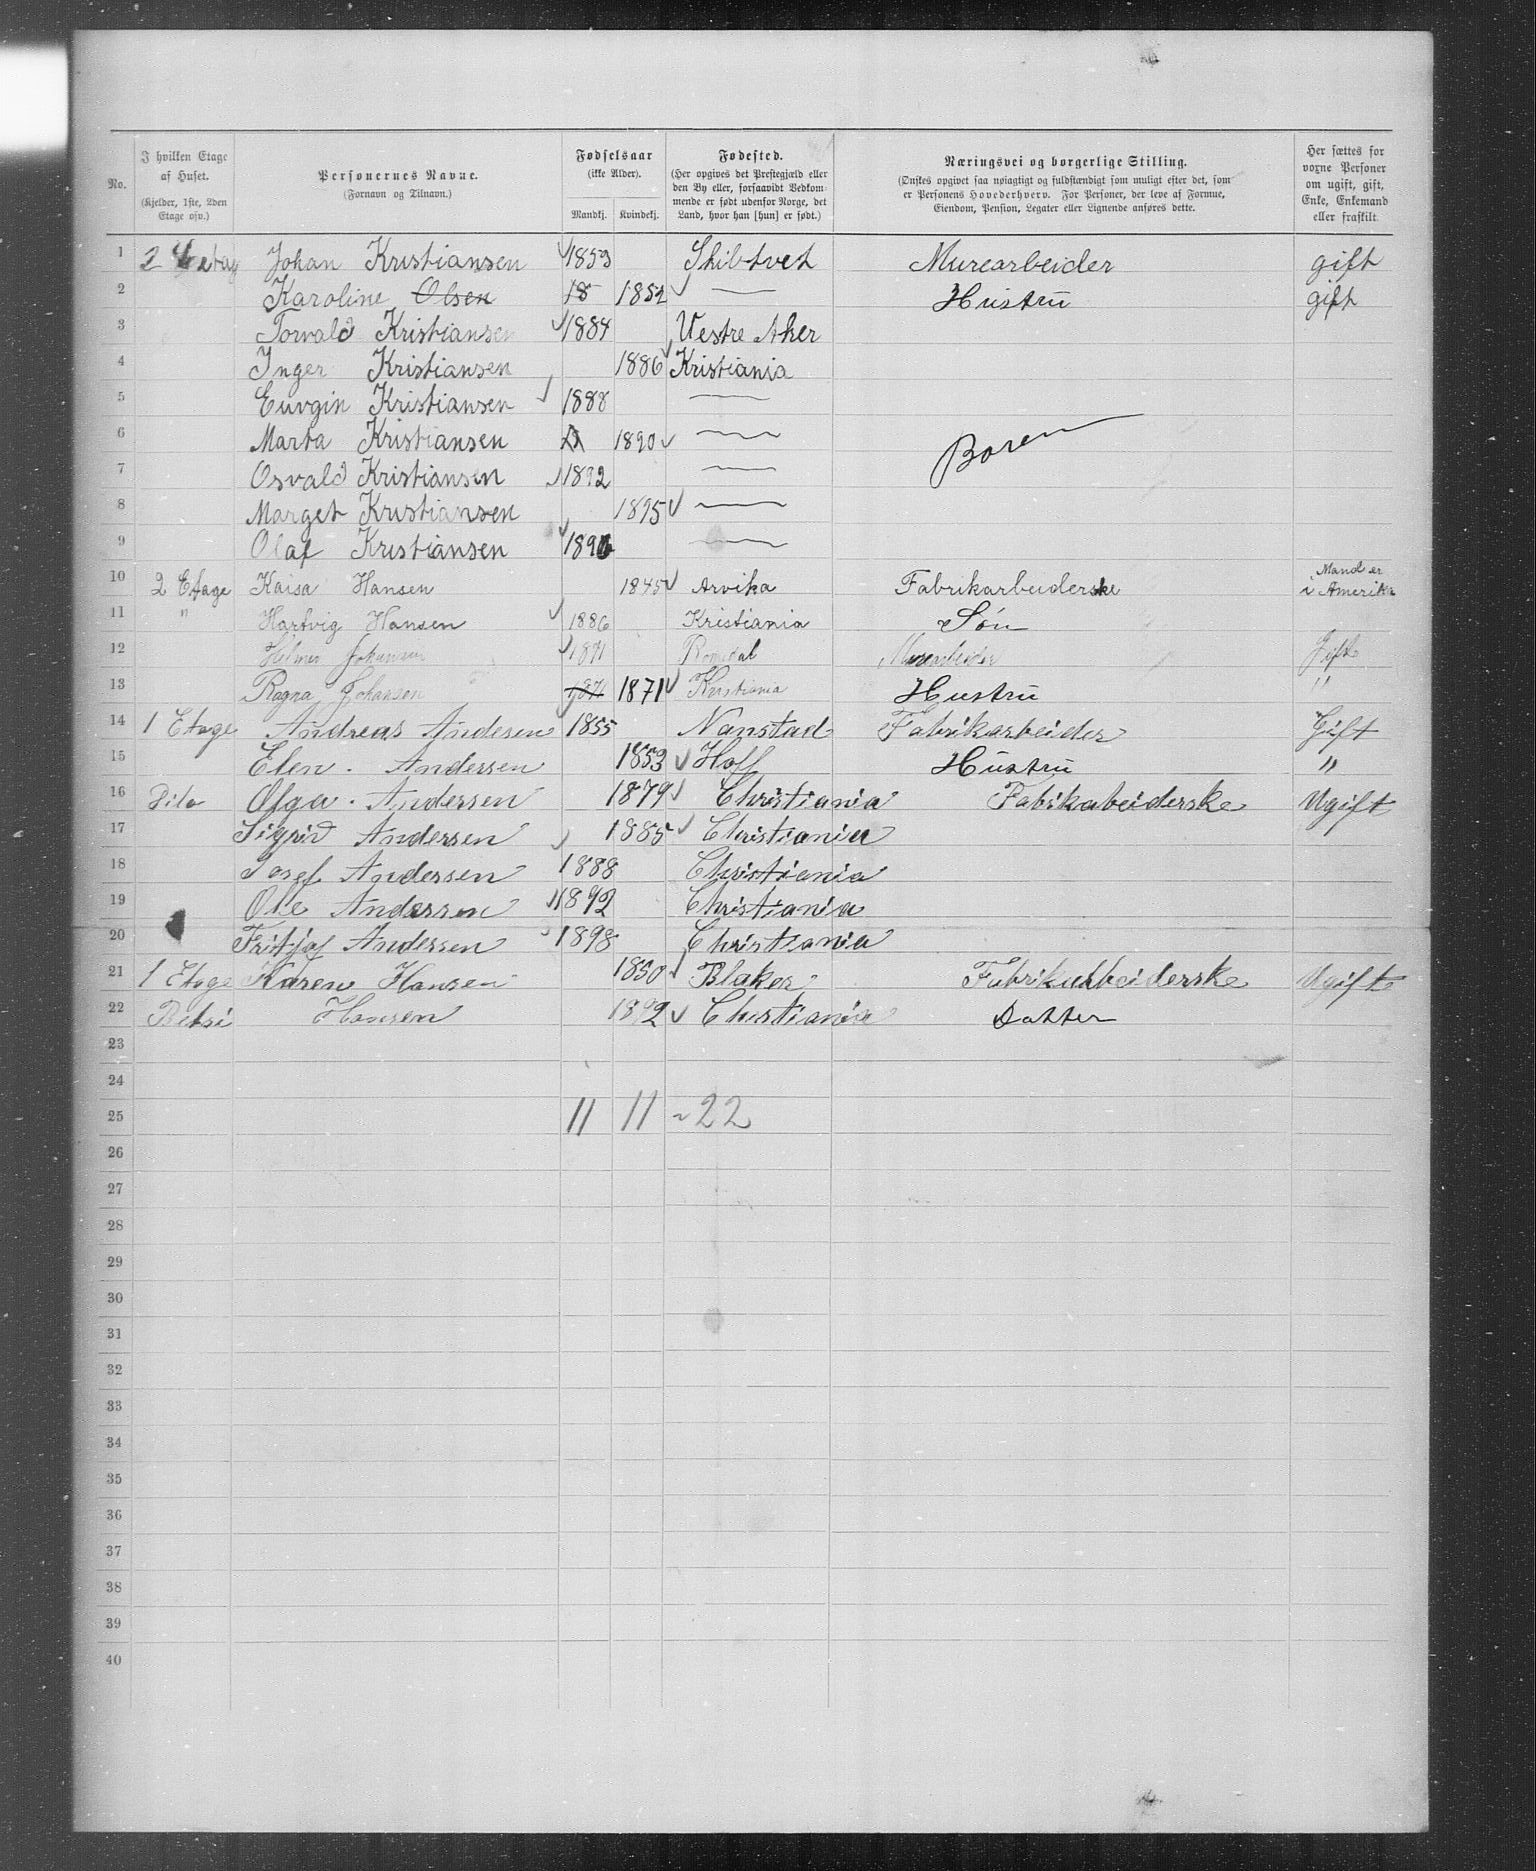 No.
I hvilken Etage af Huset. (Kjelder, 1ste, 2den Etage osv.)
Personernes Navne. (Fornavn og Tilnavn.)
Fødselsaar (ikke Alder). Mandkj. Kvindekj.
Fødested. (Her opgives det Prestegjæld eller den By eller, forsaavidt Vedkommende er født udenfor Norge, det Land, hvor han [hun] er født.)
Næringsvei og borgerlige Stilling. (Ønskes opgivet saa nøiagtigt og fuldstændigt som muligt efter det, som er Personens Hovederhverv. For Personer, der leve af Formue, Eiendom, Pension, Legater eller Lignende anføres dette.
Her sættes for voxne Personer om ugift, gift, Enke, Enkemand eller fraskilt.
1 2 Etag Johan Kristiansen 1853 Skibtvet Murearbeider gift
2 Karoline Olsen 18 1852 — Hustru gift
3 Torvald Kristiansen 1884 Vestre Aker
4 Inger Kristiansen 1886 Kristiania
5 Euvgin Kristiansen 1888 —
6 Marta Kristiansen 1890 — Boren
7 Osvald Kristiansen 1892 —
8 Marget Kristiansen 1895 —
9 Olaf Kristiansen 1896 —
10 2 Etage Kaisa Hansen 1845 Arvika Fabrikarbeiderske Mand er i Amerika
11 " Hartvig Hansen 1886 Kristiania Søn
12 Johansen 1871 Romedal Murearbeider Gift
13 Ragna Johansen 1871 1871 Kristiania Hustru "
14 1 Etage Andreas Andesen 1855 Nanstad Fabrikarbeider Gift
15 Elen. Andersen 1853 Hoff Hustru "
16 Dito Olga. Andersen 1879 Christiania Fabikabeiderske Ugift
17 Sigrid Andersen 1885 Christiania
18 Josef Andersen 1888 Christiania
19 Ole Andersen 1892 Christiania
20 Fritjof Andersen 1898 Christiania
21 1 Etage Karen Hansen 1850 Blaker Fabrikarbeiderske Ugift
22 Betsi Hansen 1892 Christiania Datter
23
24
25 11 11 ~ 22
26
27
28
29
30
31
32
33
34
35
36
37
38
39
40